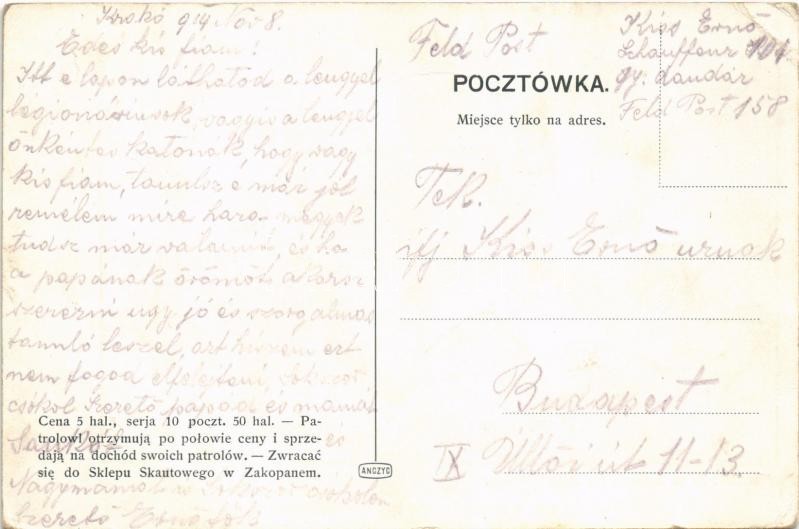 Krakó 914 Nov 8.
Édes kis fiam!
Itt e lapon láthatod a lengyel
légionáriusok, vagyis a lengyel
önkéntes katonák, hogy vagy
kis fiam, tanulsz e már jól
remélem mire haza megyek
tudsz már valamit, és ha
a papának örömöt akarsz
szerezni ugy jó és szorgalmas
tanuló leszel, azt hiszem ezt
nem fogod elfelejteni, sokszor
csókol szerető papád és mamát
és
Nagymamát is sokszor csókolom
szerető Ernőtök
Cena 5 hal., serja 10 poczt. 50 hal. — Pa-
trolowi otrzymują po połowie ceny i sprze-
dają na dochód swoich patrolów. — Zwracać
się do Sklepu Skautowego w Zakopanem.
ANCZYC
Feld Post
Kiss Ernő
Schauffeur 101
gy. dandár
Feld Post 158
POCZTÓWKA.
Miejsce tylko na adres.
Tek.
ifj Kiss Ernő urnak
Budapest
IX Üllői út 11-13.